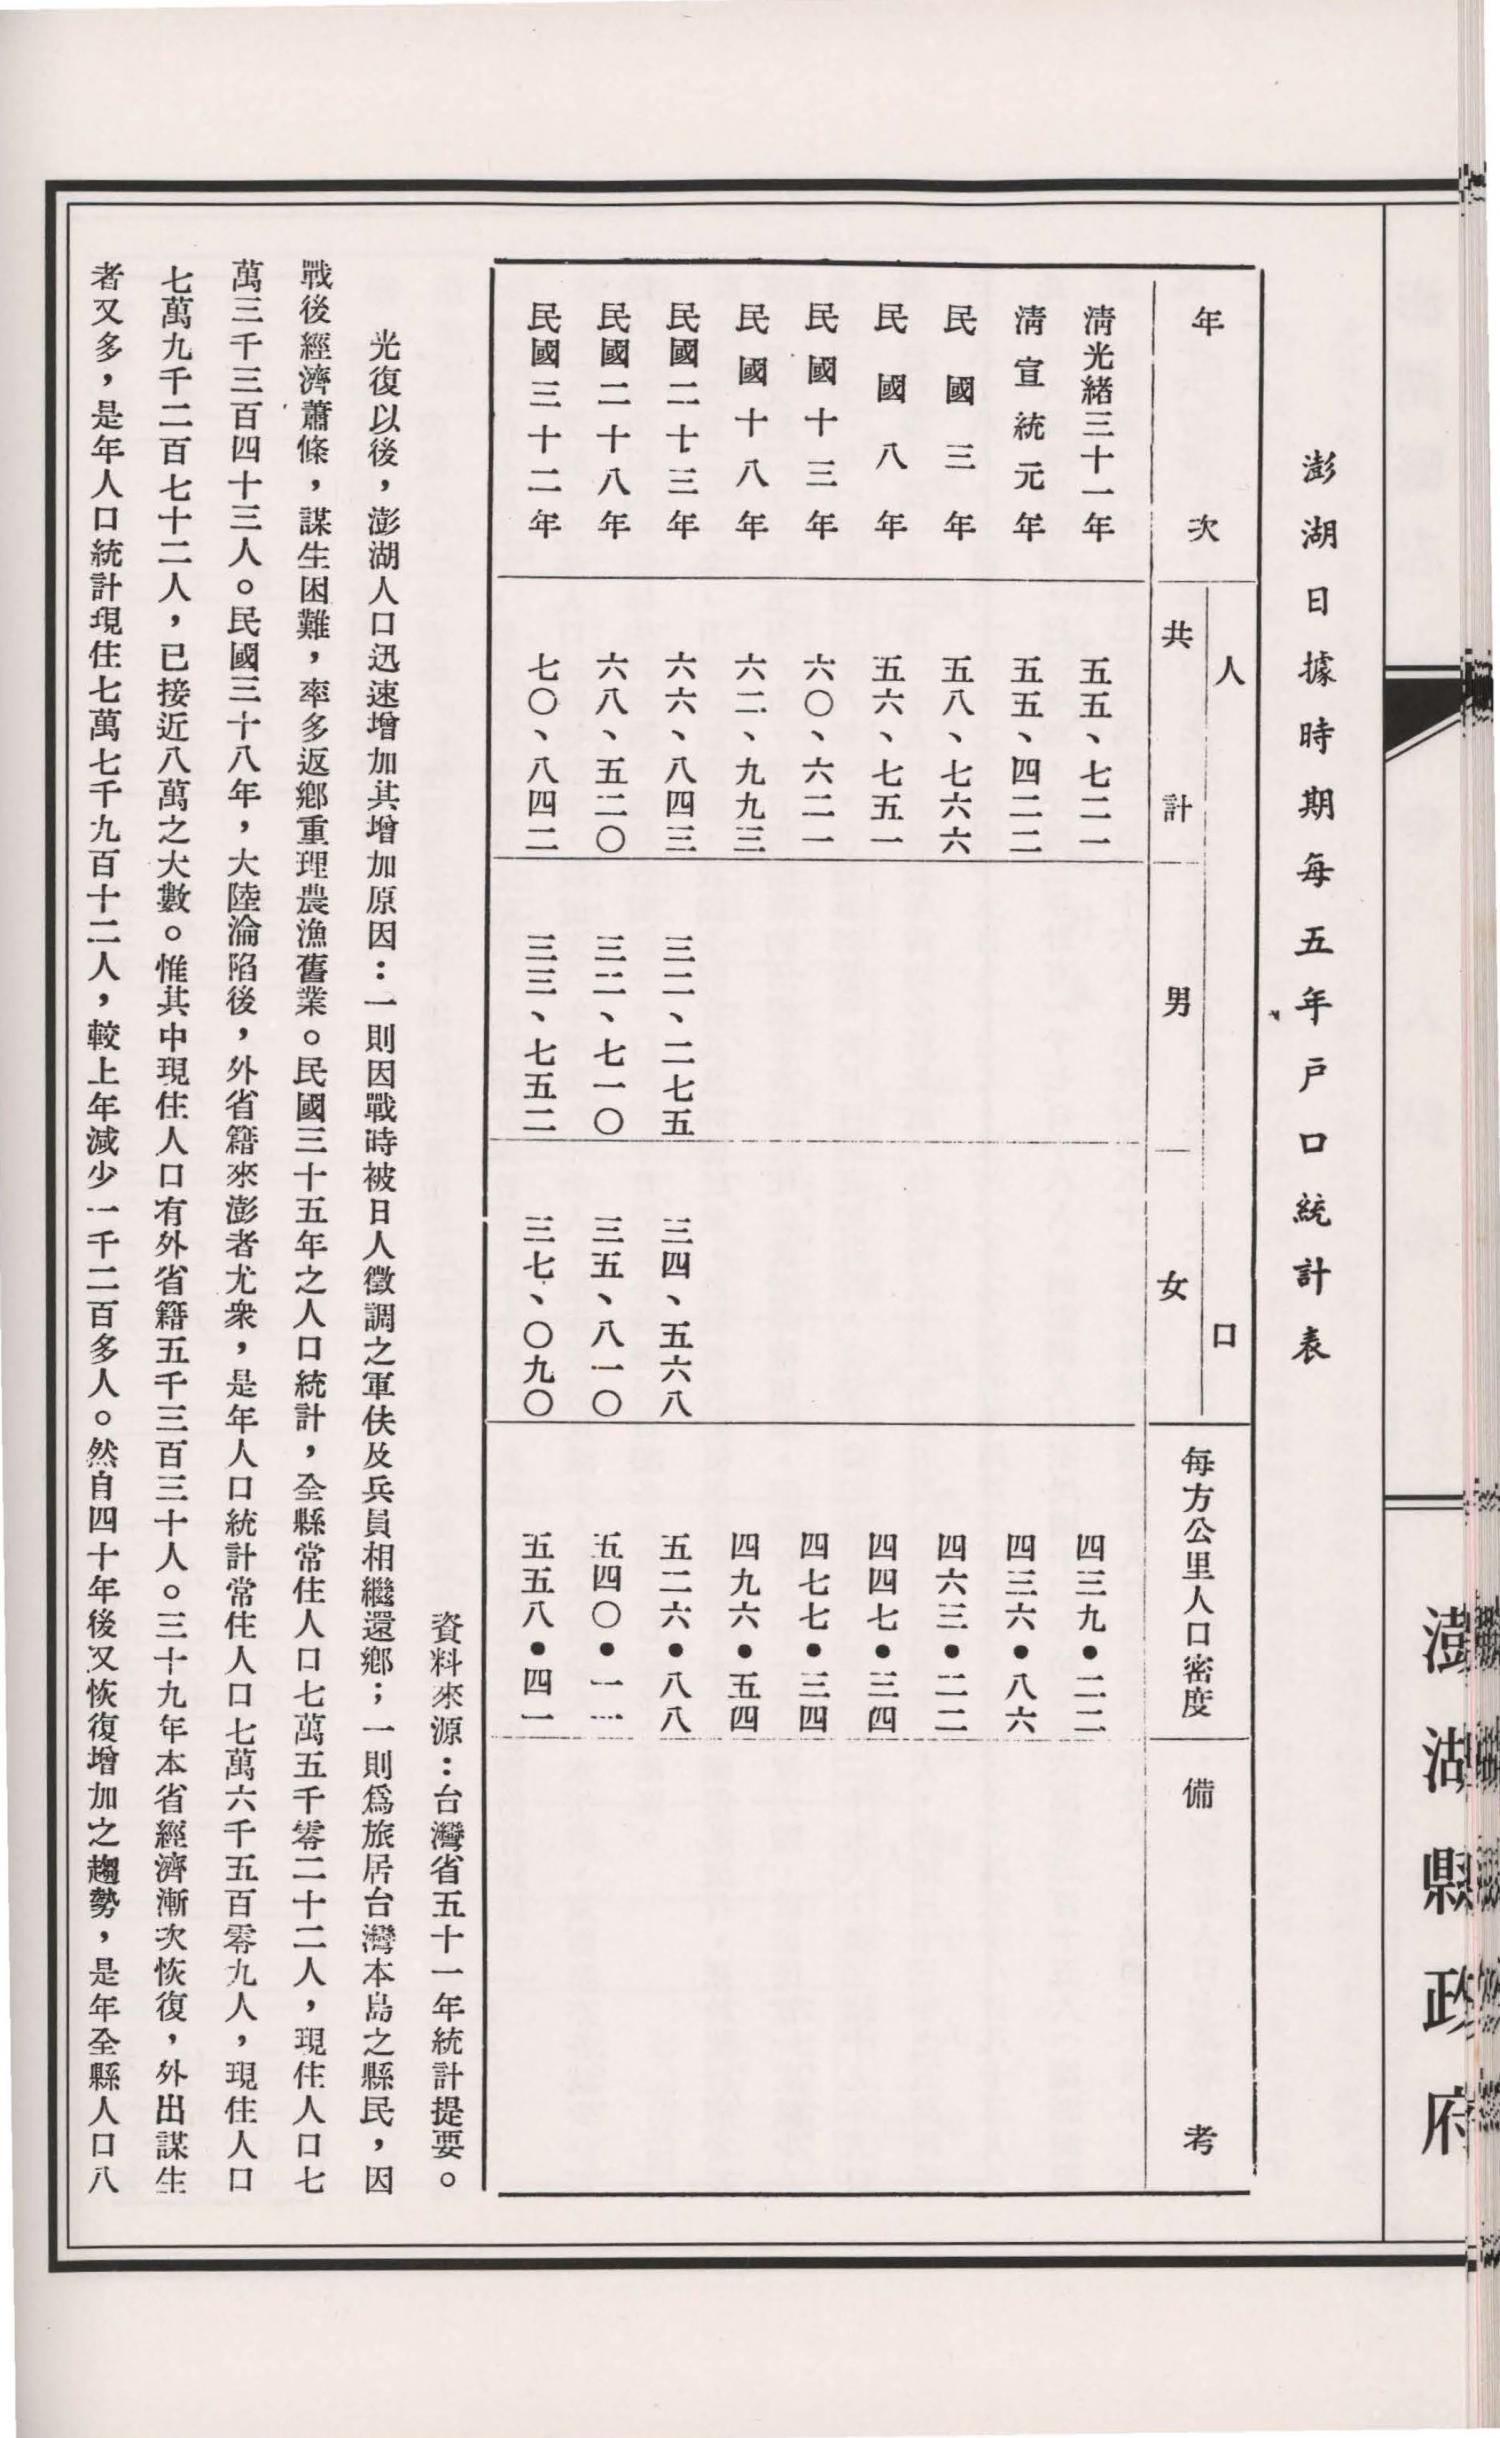 澎湖縣政府
澎湖日據時期每五年戶口統計表
年次　人口　共計　男　女　每方公里人口密度　備考
清光緒三十一年　五五、七二一　四三九•二二
清宣統元年　五五、四二二　四三六•八六
民國三年　五八、七六六　四六三•二二
民國八年　五六、七五一　四四七•三四
民國十三年　六〇、六二一　四七七•三四
民國十八年　六二、九九三　四九六•五四
民國二七三年　六六、八四三　三二、二七五　三四、五六八　五二六•八八
民國二十八年　六八、五二〇　三二、七一〇　三五、八一〇　五四〇•一一
民國三十二年　七〇、八四二　三三、七五二　三七、〇九〇　五五八•四一
資料來源：台灣省五十一年統計提要。
光復以後，澎湖人口迅速增加其增加原因：一則因戰時被日人徵調之軍伕及兵員相繼還鄉；一則爲旅居台灣本島之縣民，因
戰後經濟蕭條，謀生困難，率多返鄉重理農漁舊業。民國三十五年之人口統計，全縣常住人口七萬五千零二十二人，現住人口七
萬三千三百四十三人。民國三十八年，大陸淪陷後，外省籍來澎者尤衆，是年人口統計常住人口七萬六千五百零九人，現住人口
七萬九千二百七十二人，已接近八萬之大數。惟其中現住人口有外省籍五千三百三十人。三十九年本省經濟漸次恢復，外出謀生
者又多，是年人口統計現住七萬七千九百十二人，較上年減少一千二百多人。然自四十年後又恢復增加之趨勢，是年全縣人口八